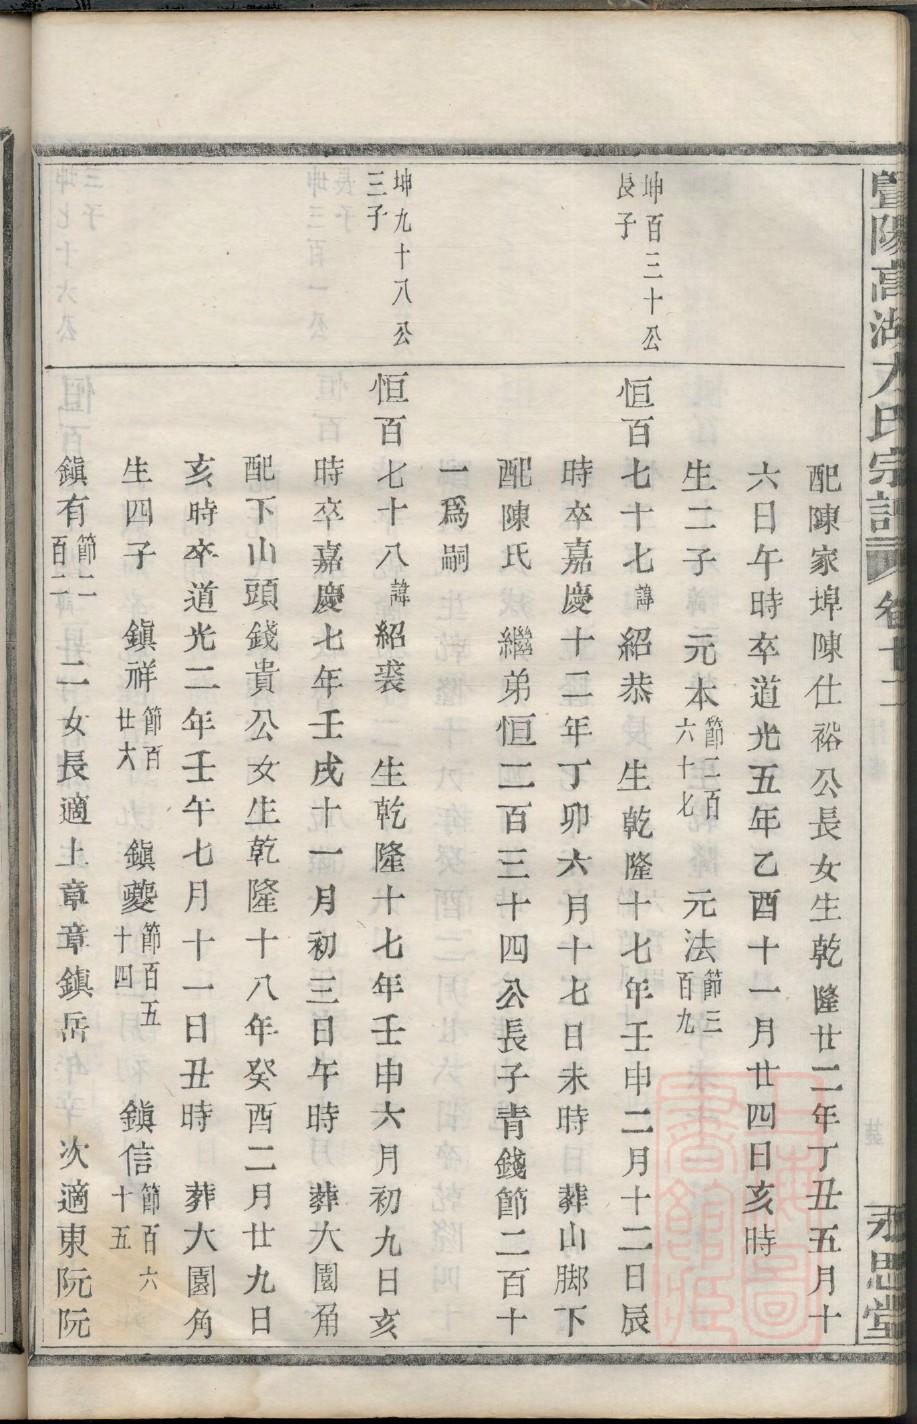 暨陽高湖方氏宗譜 卷十二 永思堂
配陳家埠陳仕裕公長女生乾隆廿二年丁丑五月十
六日午時卒道光五年乙酉十一月廿四日亥時
生二子 元本節二百六十七 元法節三百九
坤百三十公
長子
恒百七十七諱紹恭 生乾隆十七年壬申二月十二日辰
時卒嘉慶十二年丁卯六月十七日未時 葬山脚下
配陳氏 繼弟恒二百三十四公長子青錢節二百十
一爲嗣
坤九十八公
三子
恒百七十八諱紹裘 生乾隆十七年壬申六月初九日亥
時卒嘉慶七年壬戌十一月初三日午時 葬大園角
配下山頭錢貴公女生乾隆十八年癸酉二月廿九日
亥時卒道光二年壬午七月十一日丑時 葬大園角
生四子 鎮祥節百廿六 鎮夔節百五十四 鎮信節百六十五
鎮有節二百二 二女長適上章章鎮岳 次適東阮阮